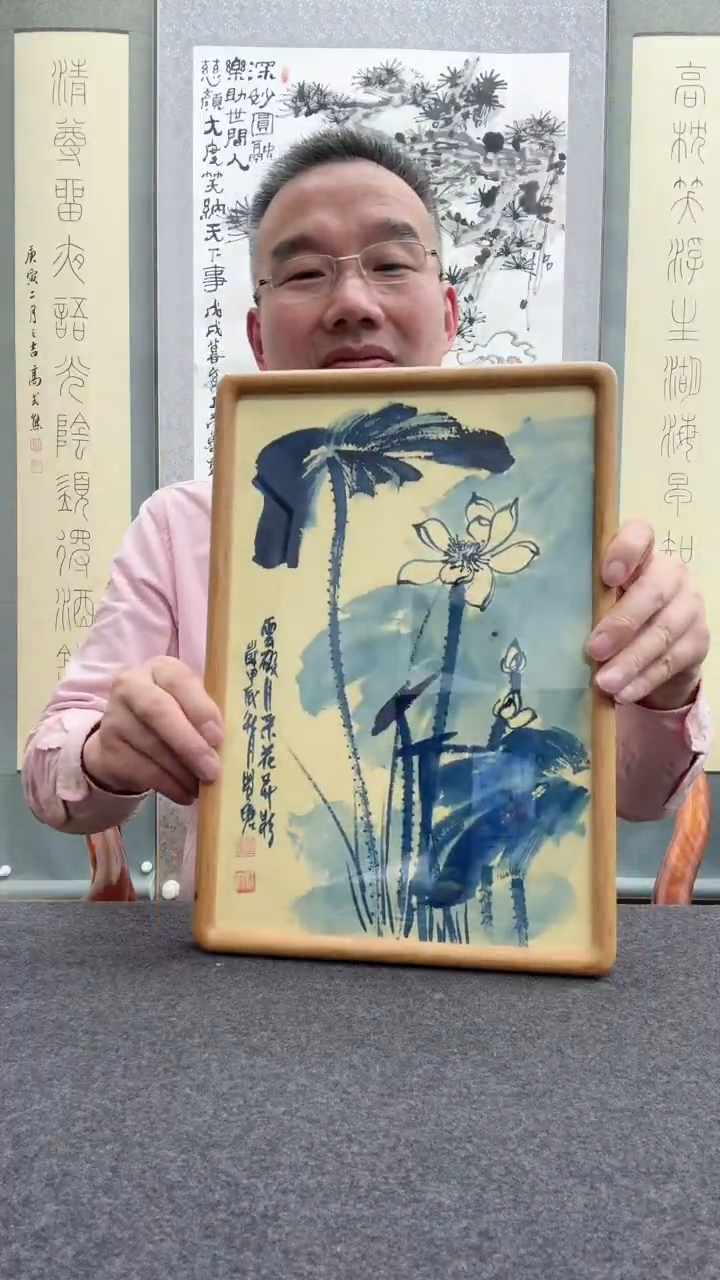 高枕笑浮生湖海早知
深妙圓融
樂助世間人
慈顏大度笑納天下事
戊戌暮
清尊留夜語光陰須得酒
庚寅二月之吉高式熊
雲破月來花弄影
歲甲辰